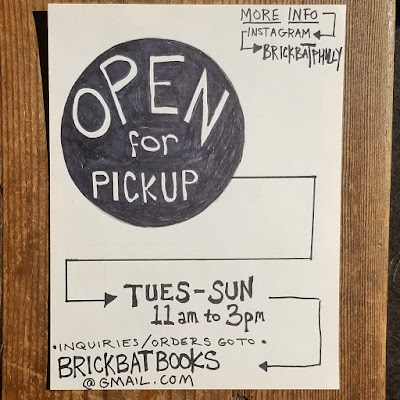 MORE INFO
INSTAGRAM
BRICKBATPHILLY
OPEN
for
PICKUP
TUES-SUN
11am to 3pm
•INQUIRIES/ORDERS GO TO•
BRICKBATBOOKS
@GMAIL.COM